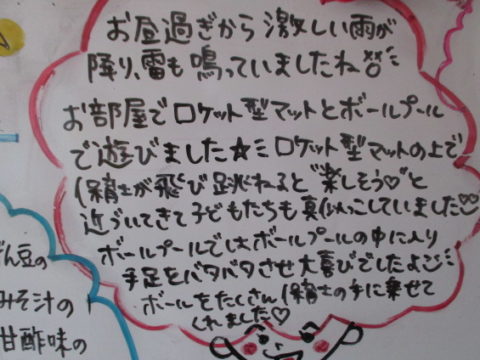 お昼過ぎから激しい雨が
降り、雷も鳴っていましたね
お部屋でロケット型マットとボールプール
で遊びました☆ ロケット型マットの上で
保育士が飛び跳ねると"楽しそう♡"と
近づいてきて子どもたちも真似っこしていました
ボールプールではボールプールの中に入り
手足をバタバタさせ大喜びでしたよ
ボールをたくさん保育士の手に乗せて
くれました♡
豆の
みそ汁の
甘酢味の